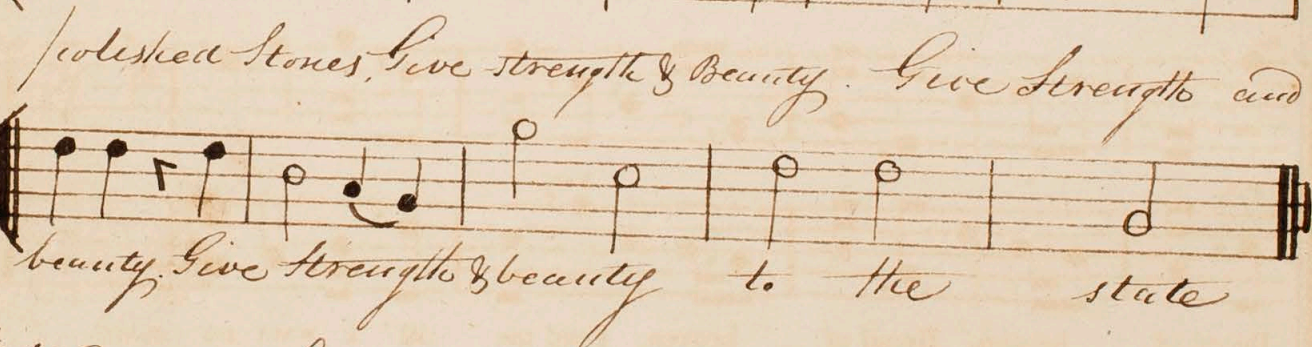 polished Stones, Give strength & Beauty. Give Strength and
beauty. Give Strength & beauty to the state